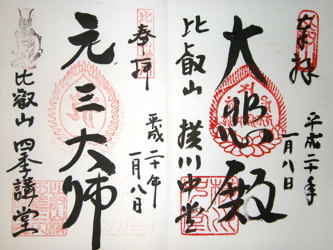 奉拝
平成二十年
一月八日
大悲殿
比叡山 横川中堂
奉拝
平成二十年
一月八日
元三大師
比叡山 四季講堂